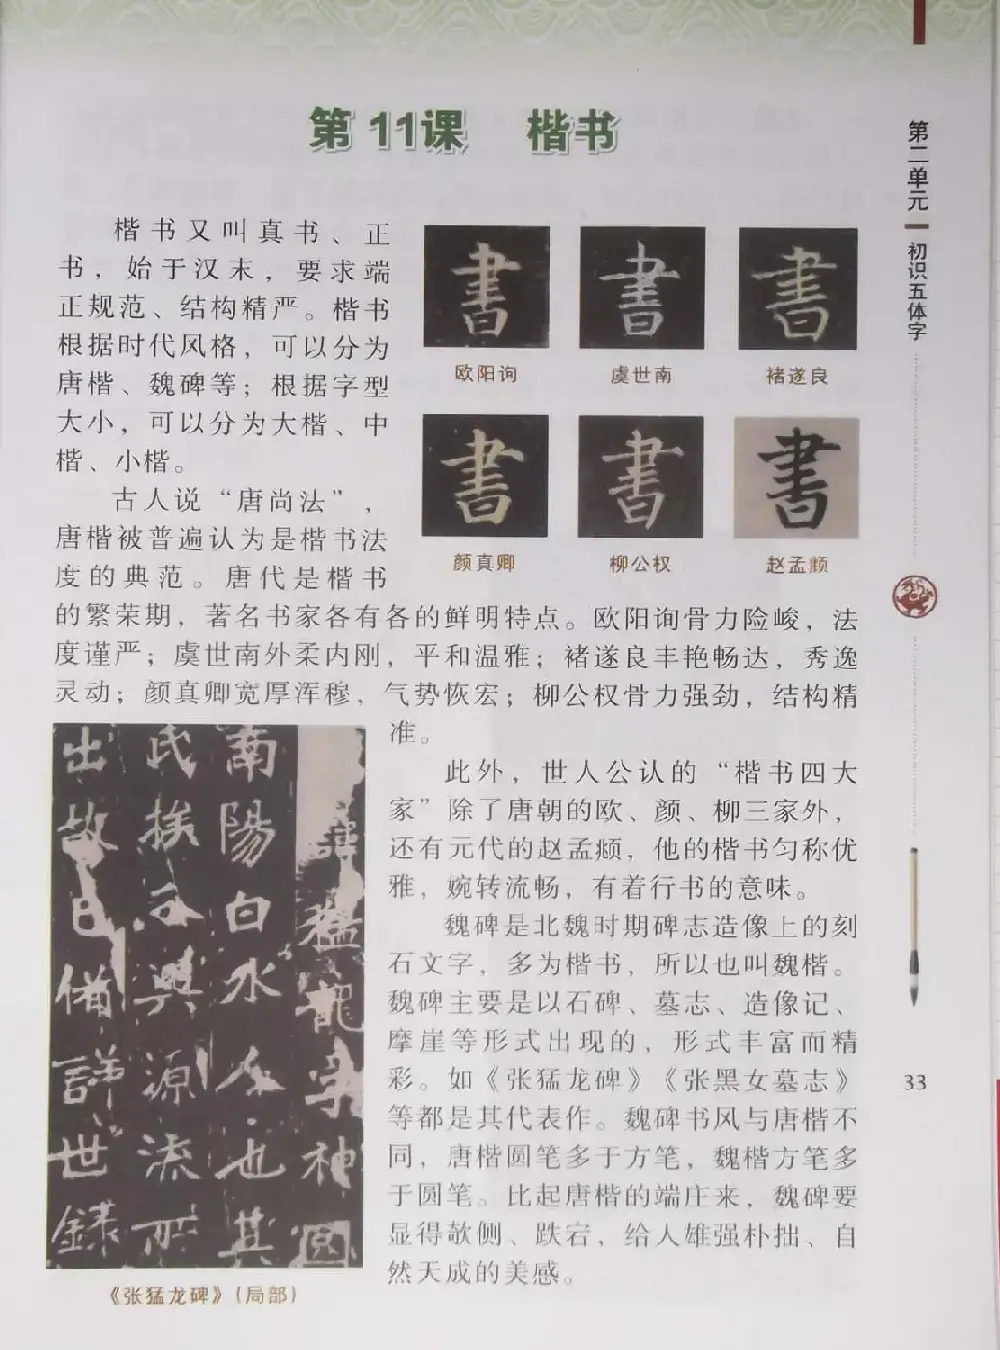 第11课 楷书
楷书又叫真书、正
书，始于汉末，要求端
正规范、结构精严。楷书
根据时代风格，可以分为
唐楷、魏碑等；根据字型
大小，可以分为大楷、中
楷、小楷。
書
書
書
欧阳询
虞世南
褚遂良
書
書
書
颜真卿
柳公权
赵孟頫
古人说“唐尚法”，
唐楷被普遍认为是楷书法
度的典范。唐代是楷书
的繁荣期，著名书家各有各的鲜明特点。欧阳询骨力险峻，法
度谨严；虞世南外柔内刚，平和温雅；褚遂良丰艳畅达，秀逸
灵动；颜真卿宽厚浑穆，气势恢宏；柳公权骨力强劲，结构精
准。
此外，世人公认的“楷书四大
家”除了唐朝的欧、颜、柳三家外，
还有元代的赵孟頫，他的楷书匀称优
雅，婉转流畅，有着行书的意味。
魏碑是北魏时期碑志造像上的刻
石文字，多为楷书，所以也叫魏楷。
魏碑主要是以石碑、墓志、造像记、
摩崖等形式出现的，形式丰富而精
彩。如《张猛龙碑》《张黑女墓志》
等都是其代表作。魏碑书风与唐楷不
同，唐楷圆笔多于方笔，魏楷方笔多
于圆笔。比起唐楷的端庄来，魏碑要
显得欹侧、跌宕，给人雄强朴拙、自
然天成的美感。
猛龍字神
南陽白水人也其
氏族分興源流所
出故已備詳世録
《张猛龙碑》（局部）
第二单元
初识五体字
33